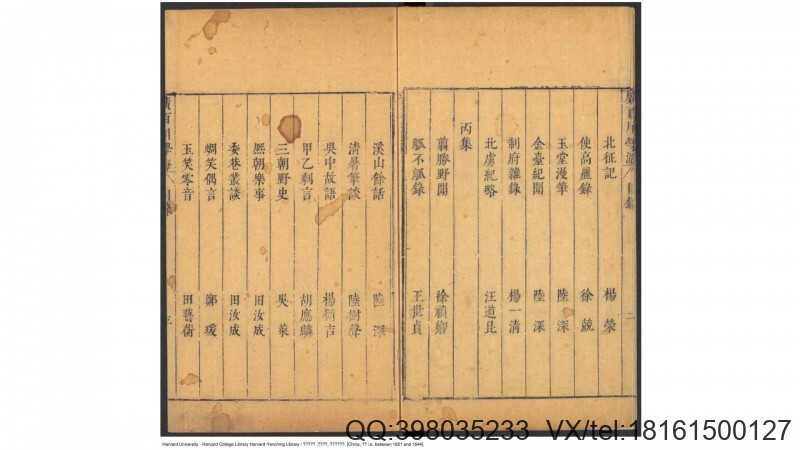 廣百川學海 目錄 二
北征記 楊榮
使高麗錄 徐兢
玉堂漫筆 陸深
金臺紀聞 陸深
制府雜錄 楊一清
北虜紀略 汪道昆
丙集
翦勝野聞 徐禎卿
觚不觚錄 王世貞
溪山餘話 陸深
清暑筆談 陸樹聲
吳中故語 楊循吉
甲乙剩言 胡應麟
三朝野史 吳萊
熙朝樂事 田汝成
委巷叢談 田汝成
蜩笑偶言 鄭瑗
玉笑零音 田藝蘅
廣百川學海 目錄 三
QQ:398035233 VX/tel:18161500127
Harvard University - Harvard College Library Harvard-Yenching Library / ?????. ????, ??????, [China, ?? i.e. between 1621 and 1644].